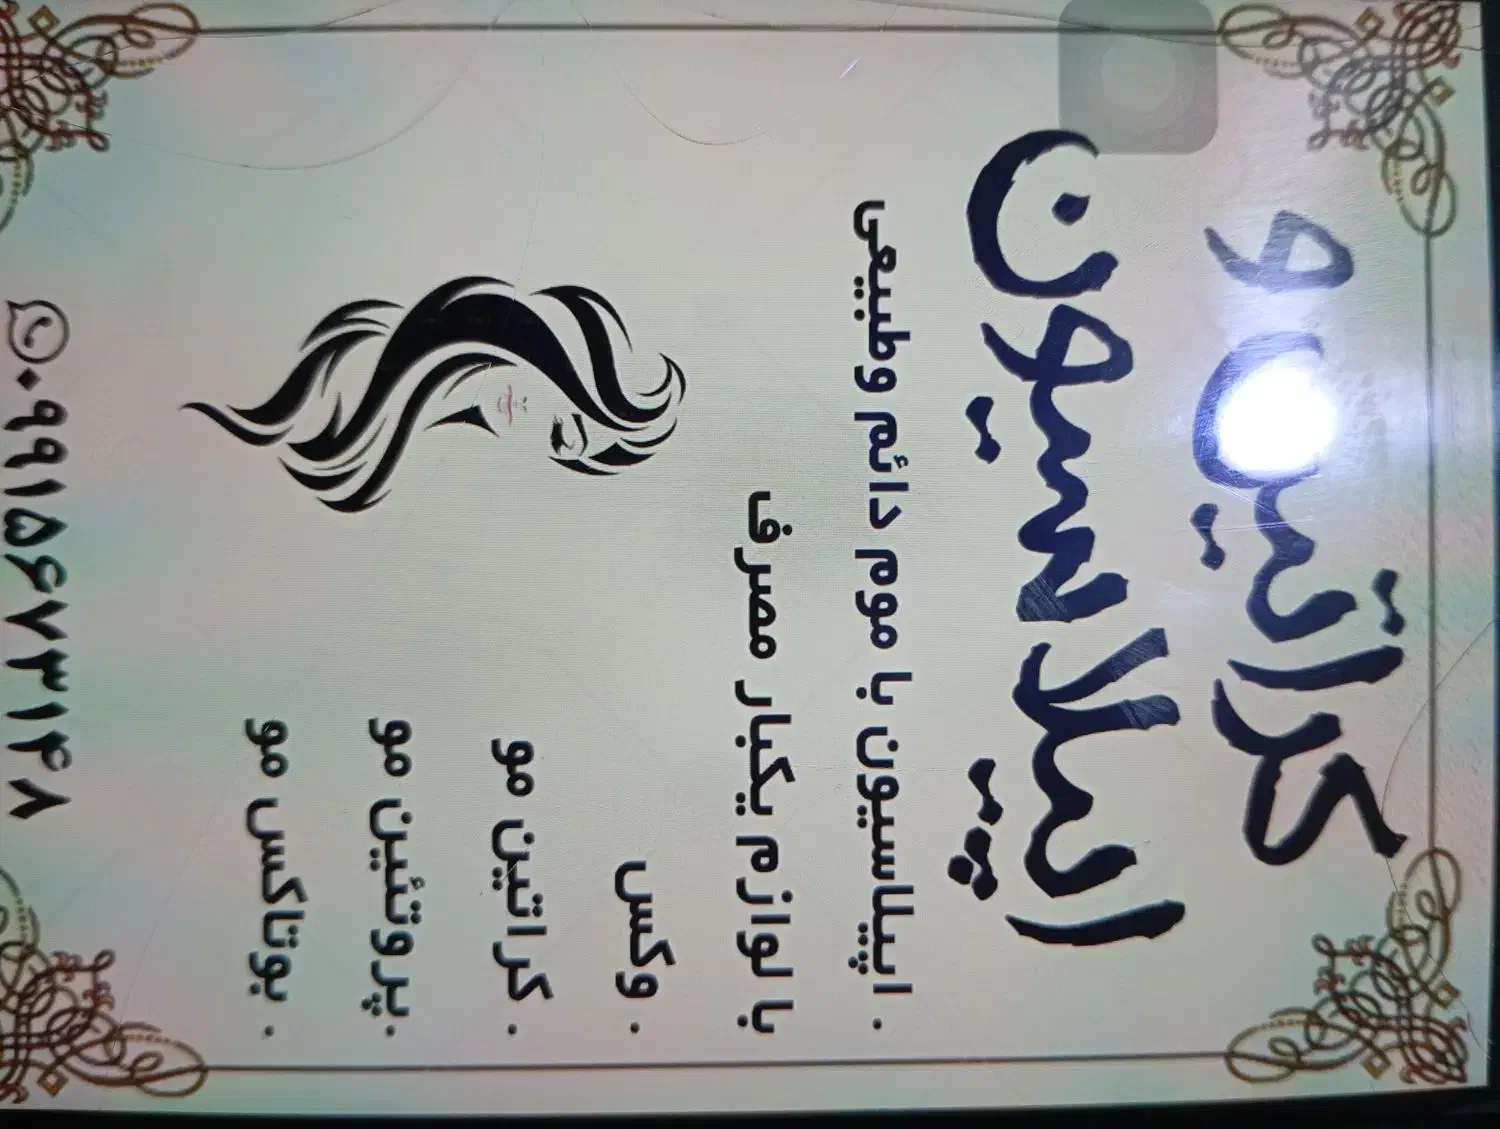 کراتین و
اپیلاسیون
. اپیلاسیون با موم دائم وطبیعی
با لوازم یکبار مصرف
. وکس
. کراتین مو
.پروتئین مو
. بوتاکس مو
۰۹۹۱۵۶۷۳۱۴۸